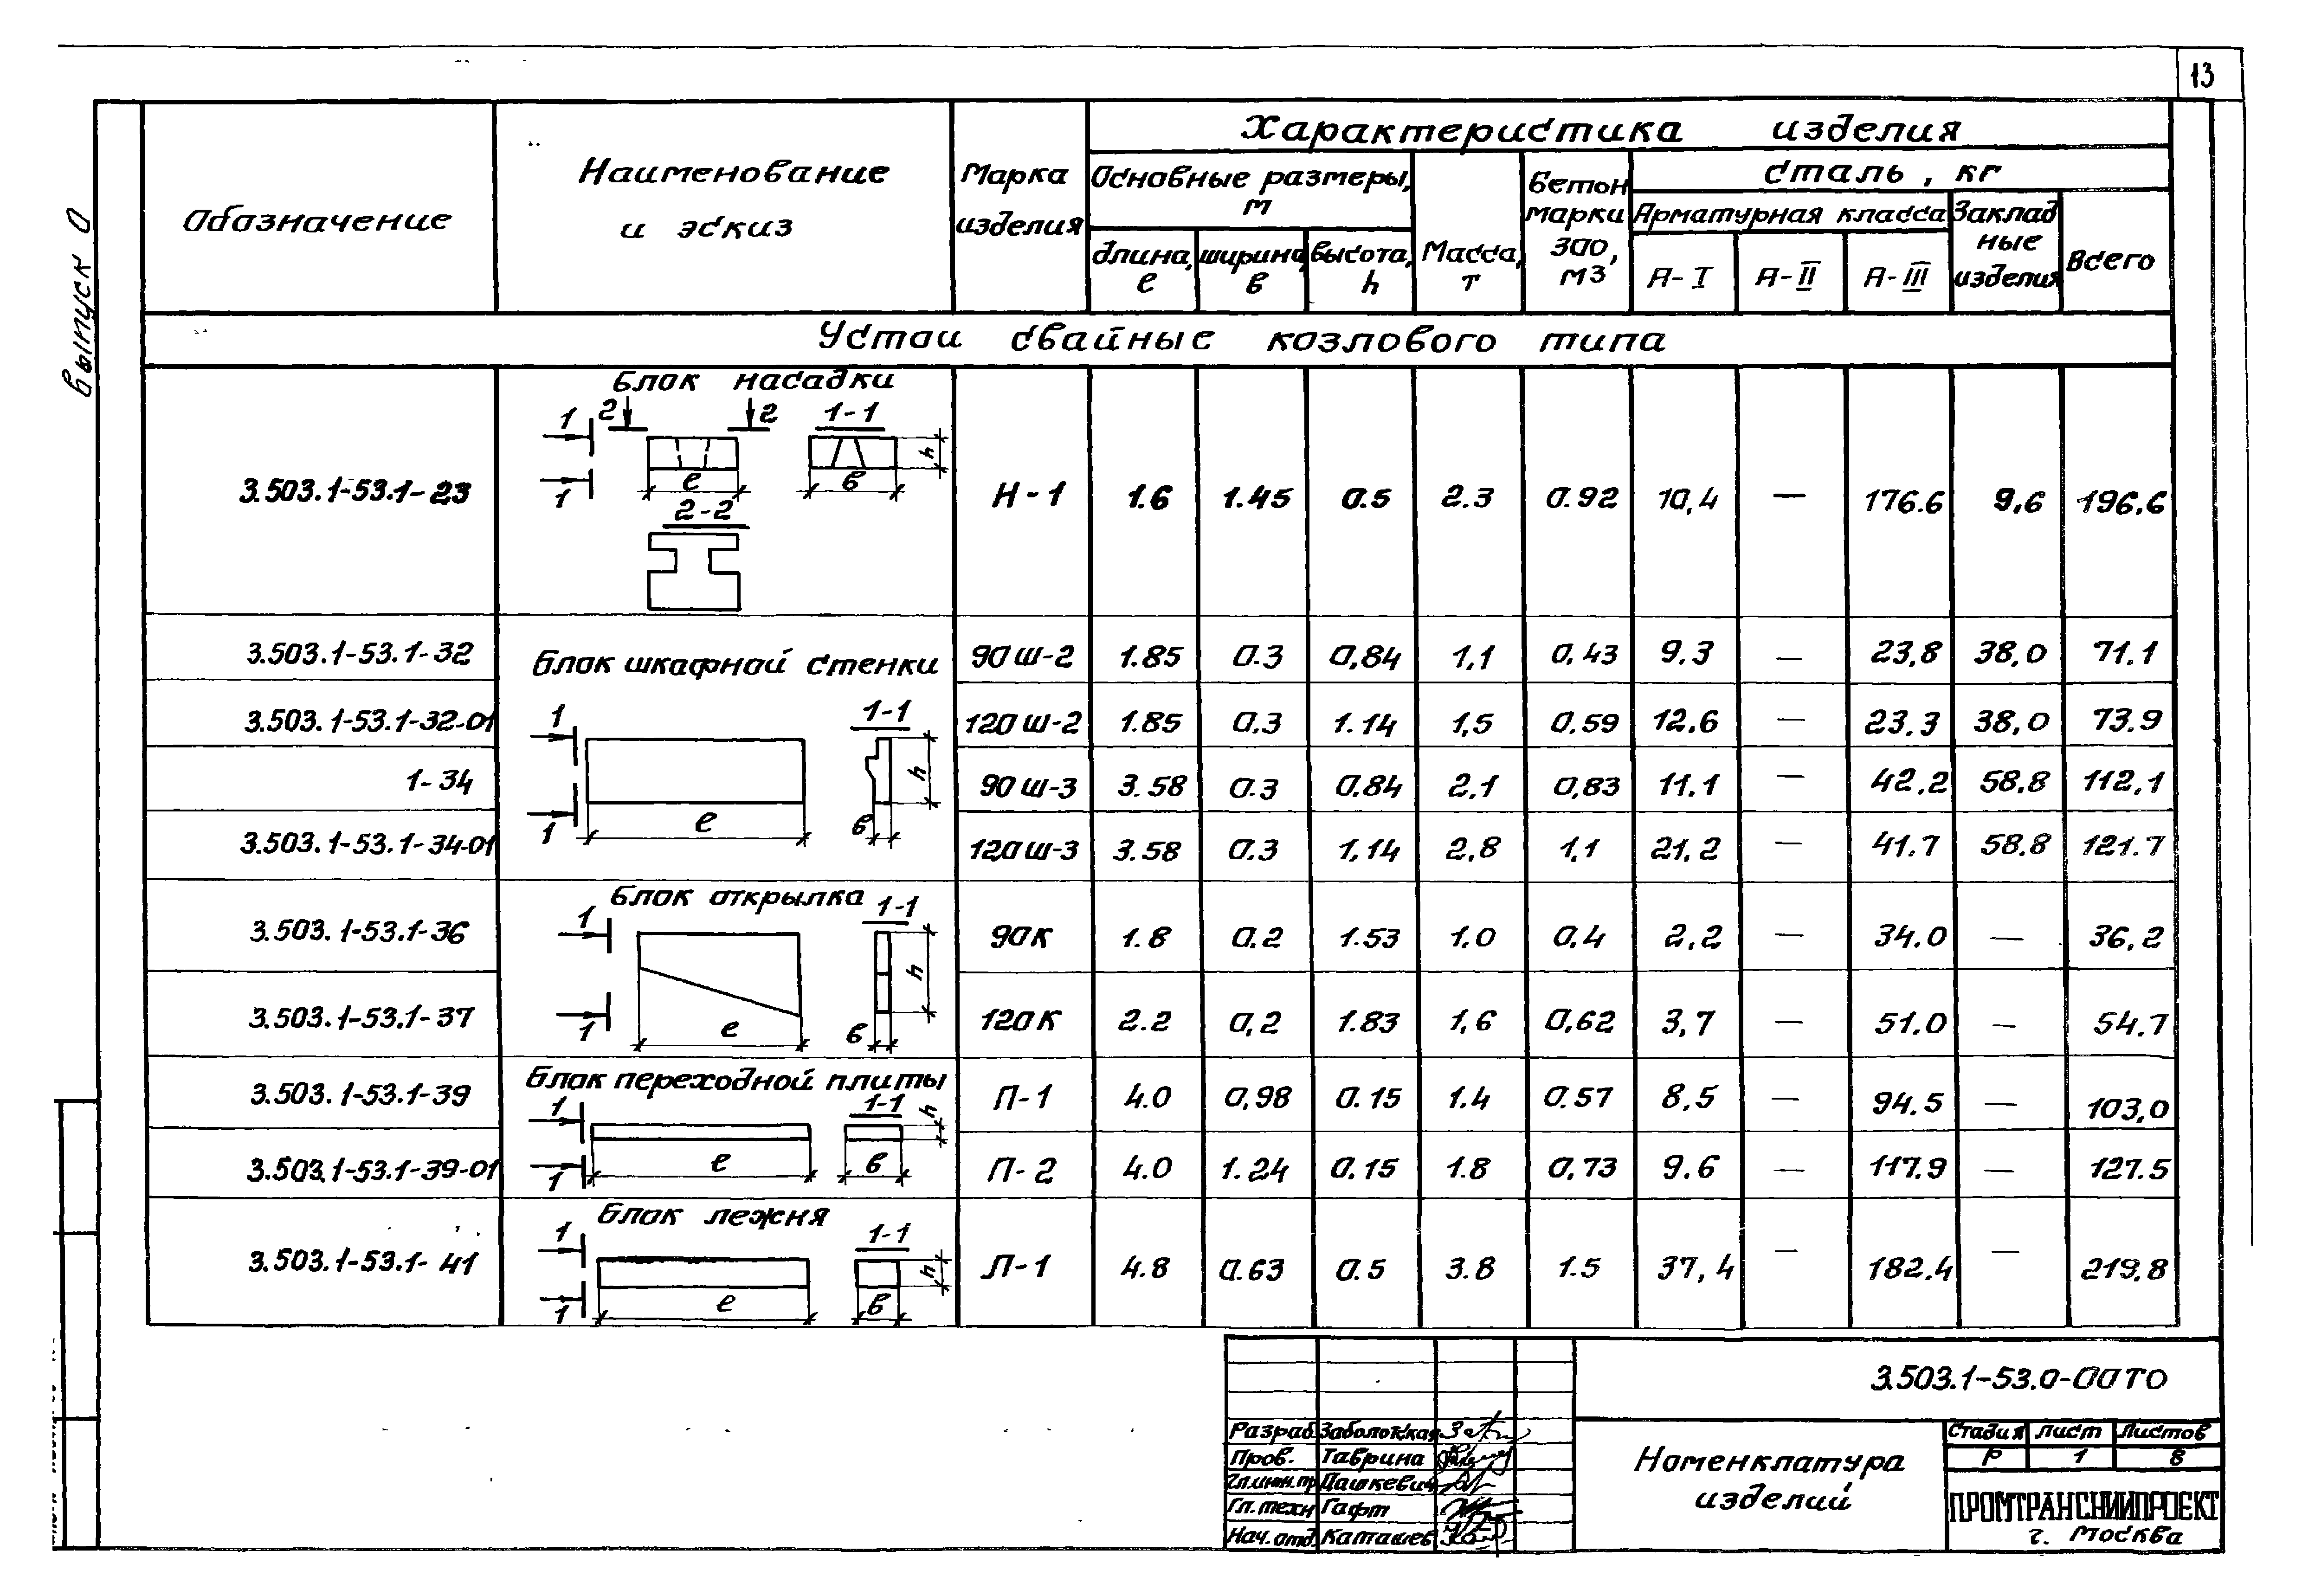 13
Выпуск 0
Обозначение
Наименование
и эскиз
Марка
изделия
Характеристика изделия
Основные размеры,
м
длина,
l
ширина,
в
высота,
h
Масса,
т
Бетон
марки
300,
м3
Сталь, кг
Арматурная класса
А-I
А-II
А-III
Заклад
ные
изделия
Всего
Устои свайные козлового типа
3.503.1-53.1-23
Блок насадки
1 2 2 1-1
1 l в h
2-2
Н-1 1.6 1.45 0.5 2.3 0.92 10,4 — 176.6 9,6 196.6
Блок шкафной стенки
1 1-1
1 l в h
3.503.1-53.1-32 90Ш-2 1.85 0.3 0,84 1,1 0,43 9.3 — 23,8 38,0 71.1
3.503.1-53.1-32-01 120Ш-2 1.85 0.3 1.14 1,5 0.59 12.6 — 23.3 38,0 73.9
1-34 90Ш-3 3.58 0.3 0.84 2.1 0,83 11.1 — 42.2 58.8 112,1
3.503.1-53.1-34-01 120Ш-3 3.58 0.3 1,14 2,8 1,1 21,2 — 41.7 58.8 121.7
Блок открылка
1 1-1
1 l в h
3.503.1-53.1-36 90К 1.8 0,2 1.53 1,0 0,4 2,2 — 34.0 — 36,2
3.503.1-53.1-37 120К 2.2 0,2 1.83 1,6 0,62 3,7 — 51.0 — 54.7
Блок переходной плиты
1 1-1
1 l в h
3.503.1-53.1-39 П-1 4.0 0,98 0.15 1.4 0.57 8,5 — 94.5 — 103,0
3.503.1-53.1-39-01 П-2 4.0 1.24 0.15 1.8 0,73 9.6 — 117.9 — 127.5
Блок лежня
1 1-1
1 l в h
3.503.1-53.1-41 Л-1 4.8 0.63 0.5 3.8 1.5 37,4 — 182.4 — 219.8
3.503.1-53.0-00ТО
Разраб. Заболоцкая
Пров. Таврина
Гл.инж.пр Пашкевич
Гл.техн Гафт
Нач.отд. Каташев
Номенклатура
изделий
Стадия Лист Листов
Р 1 8
ПРОМТРАНСНИИПРОЕКТ
г. Москва